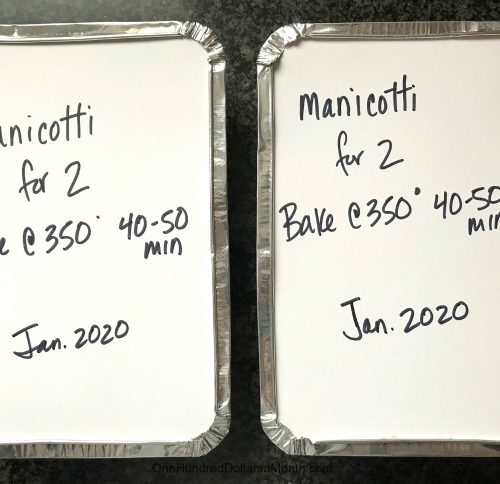 anicotti
for 2
e @ 350° 40-50
min
Jan. 2020
Manicotti
for 2
Bake @ 350° 40-50
min
Jan. 2020
OneHundredDollarsaMonth.com